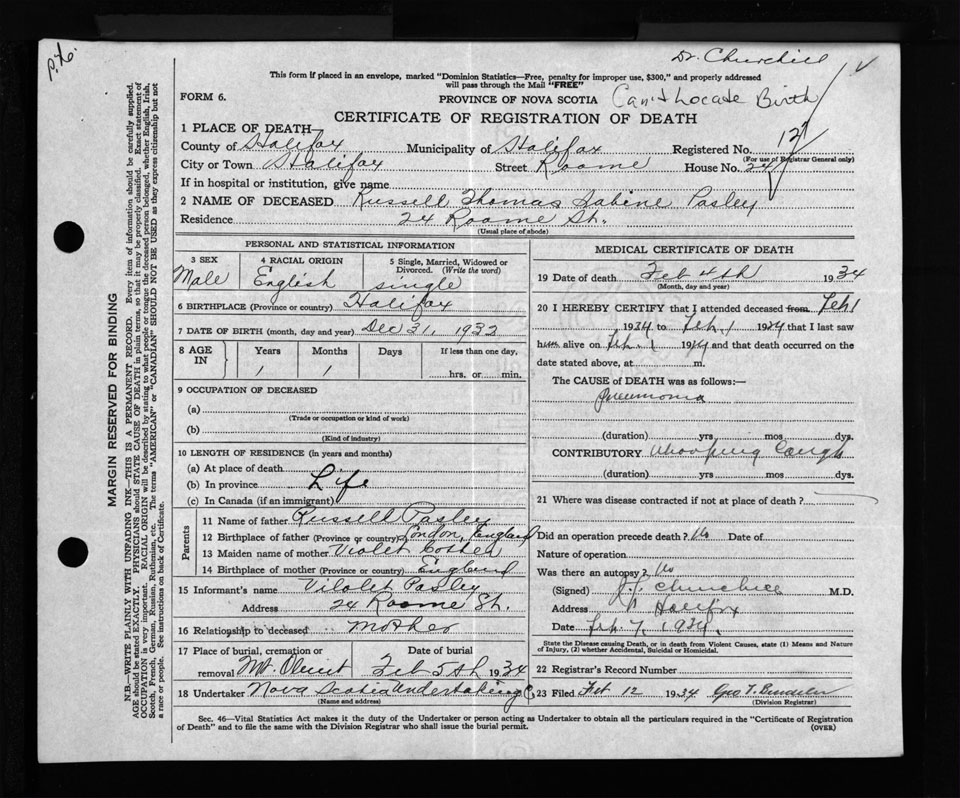 p.to.
Dr. Churchill
This form if placed in an envelope, marked "Dominion Statistics—Free, penalty for improper use, $300," and properly addressed
will pass through the Mail "FREE"
FORM 6.
PROVINCE OF NOVA SCOTIA Can't Locate Birth
CERTIFICATE OF REGISTRATION OF DEATH
1 PLACE OF DEATH—
County of Halifax Municipality of Halifax Registered No. 127
(For use of Registrar General only)
City or Town Halifax Street Roome House No. 24
If in hospital or institution, give name
2 NAME OF DECEASED Russell Thomas Sabine Pasley
Residence 24 Roome St.
(Usual place of abode)
PERSONAL AND STATISTICAL INFORMATION
3 SEX 4 RACIAL ORIGIN 5 Single, Married, Widowed or
Divorced. (Write the word)
Male English single
6 BIRTHPLACE (Province or country) Halifax
7 DATE OF BIRTH (month, day and year) Dec 31, 1932
8 AGE IN Years Months Days If less than one day,
1 1 hrs. or min.
9 OCCUPATION OF DECEASED
(a)
(Trade or occupation or kind of work)
(b)
(Kind of industry)
10 LENGTH OF RESIDENCE (in years and months)
(a) At place of death
(b) In province Life
(c) In Canada (if an immigrant)
Parents
11 Name of father Russell Pasley
12 Birthplace of father (Province or country) London, England
13 Maiden name of mother Violet
14 Birthplace of mother (Province or country) England
15 Informant's name Vilolet Pasley
Address 24 Roome St.
16 Relationship to deceased Mother
17 Place of burial, cremation or Date of burial
removal Mt. Olivit Feb 5th 1934
18 Undertaker Nova Scotia Undertaking
(Name and address)
MEDICAL CERTIFICATE OF DEATH
19 Date of death Feb 4th 1934
(Month, day and year)
20 I HEREBY CERTIFY that I attended deceased from Feb 1
1934 to Feb. 1 1934 that I last saw
him alive on Feb. 1 1934 and that death occurred on the
date stated above, at m.
The CAUSE of DEATH was as follows:—
Pneumonia
(duration) yrs mos dys.
CONTRIBUTORY Whooping Cough
(duration) yrs. mos. dys.
21 Where was disease contracted if not at place of death?
Did an operation precede death? No Date of
Nature of operation
Was there an autopsy? No
(Signed) J. Churchill M.D.
Address Halifax
Date Feb. 7, 1934.
State the Disease causing Death, or in death from Violent Causes, state (1) Means and Nature
of Injury, (2) whether Accidental, Suicidal or Homicidal.
22 Registrar's Record Number
23 Filed Feb 12 1934 Geo T.
(Division Registrar)
Sec. 46—Vital Statistics Act makes it the duty of the Undertaker or person acting as Undertaker to obtain all the particulars required in the "Certificate of Registration
of Death" and to file the same with the Division Registrar who shall issue the burial permit.
(OVER)
MARGIN RESERVED FOR BINDING
N.B.—WRITE PLAINLY WITH UNFADING INK—THIS IS A PERMANENT RECORD. Every item of information should be carefully supplied.
AGE should be stated EXACTLY. PHYSICIANS should STATE CAUSE OF DEATH in plain terms, so that it may be properly classified. Exact statement of
OCCUPATION is very important. RACIAL ORIGIN will be described by stating to what people or tongue the deceased person belonged, whether English, Irish,
Scotch, French, German, Russian, Ruthenian, etc. The terms "AMERICAN" or "CANADIAN" SHOULD NOT BE USED as they express citizenship but not
a race or people. See instructions on back of Certificate.